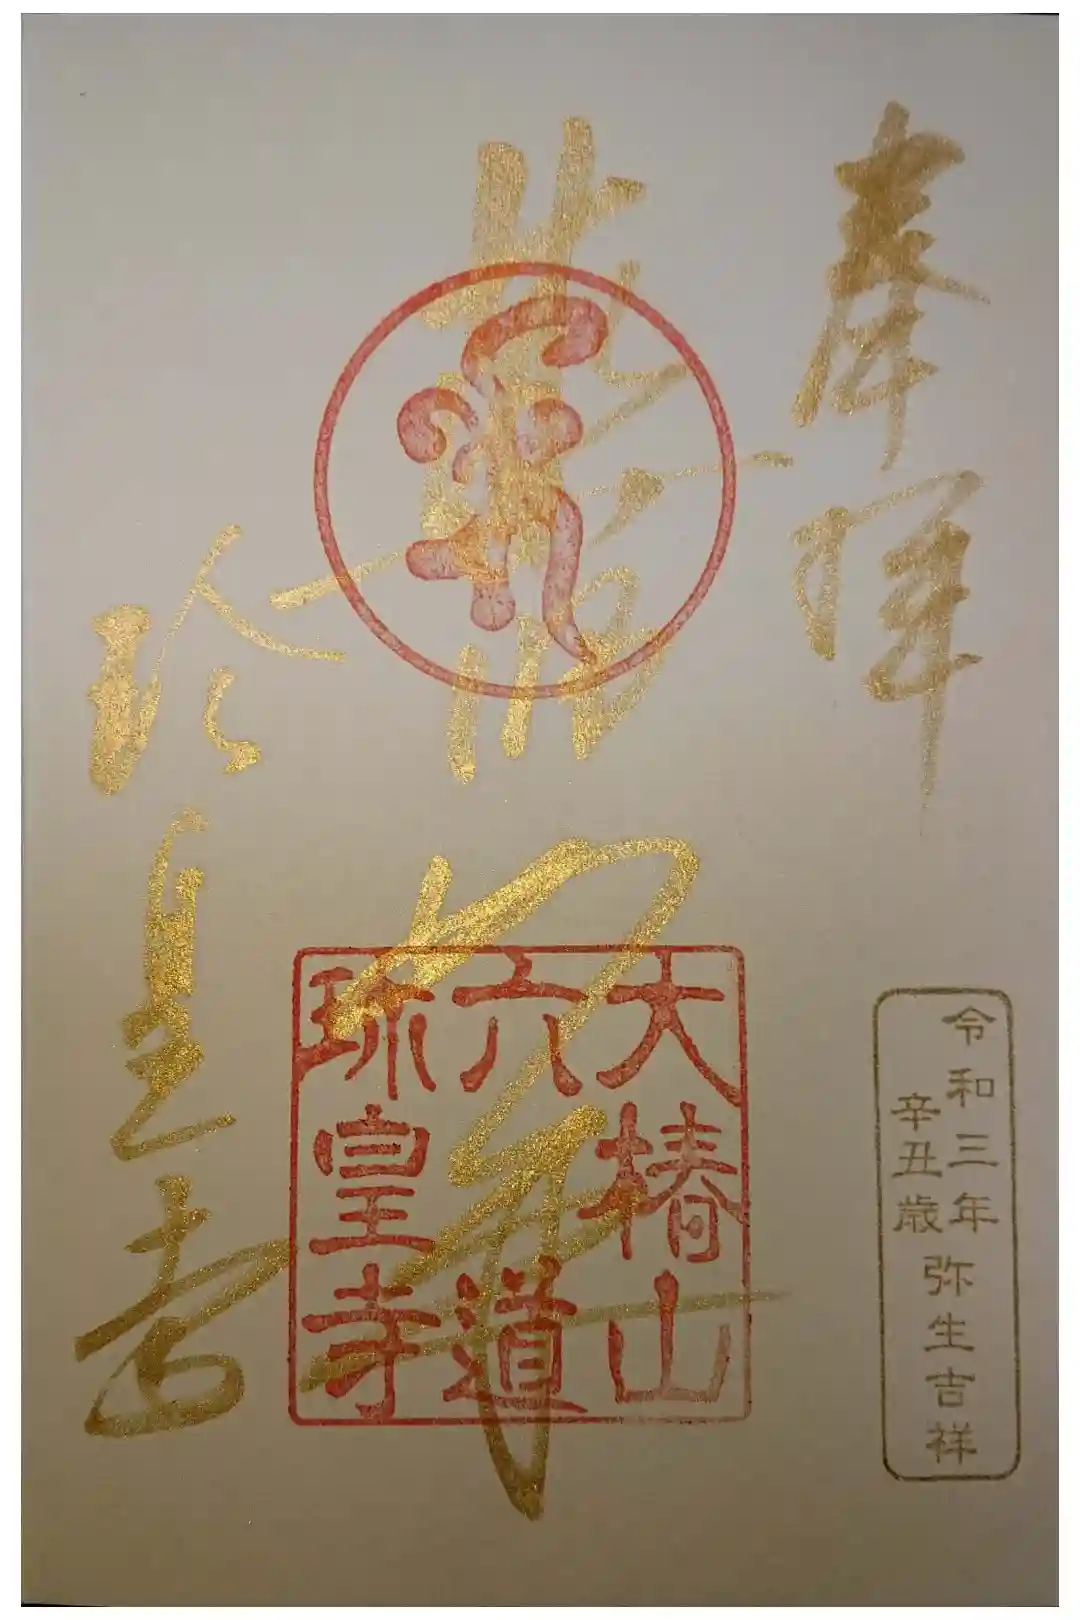 奉拝
珍皇寺
大椿山
六道
珎皇寺
令和三年
辛丑歳
弥生吉祥